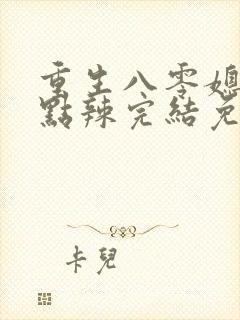 重生八零媳
點辣完結免
卡兒